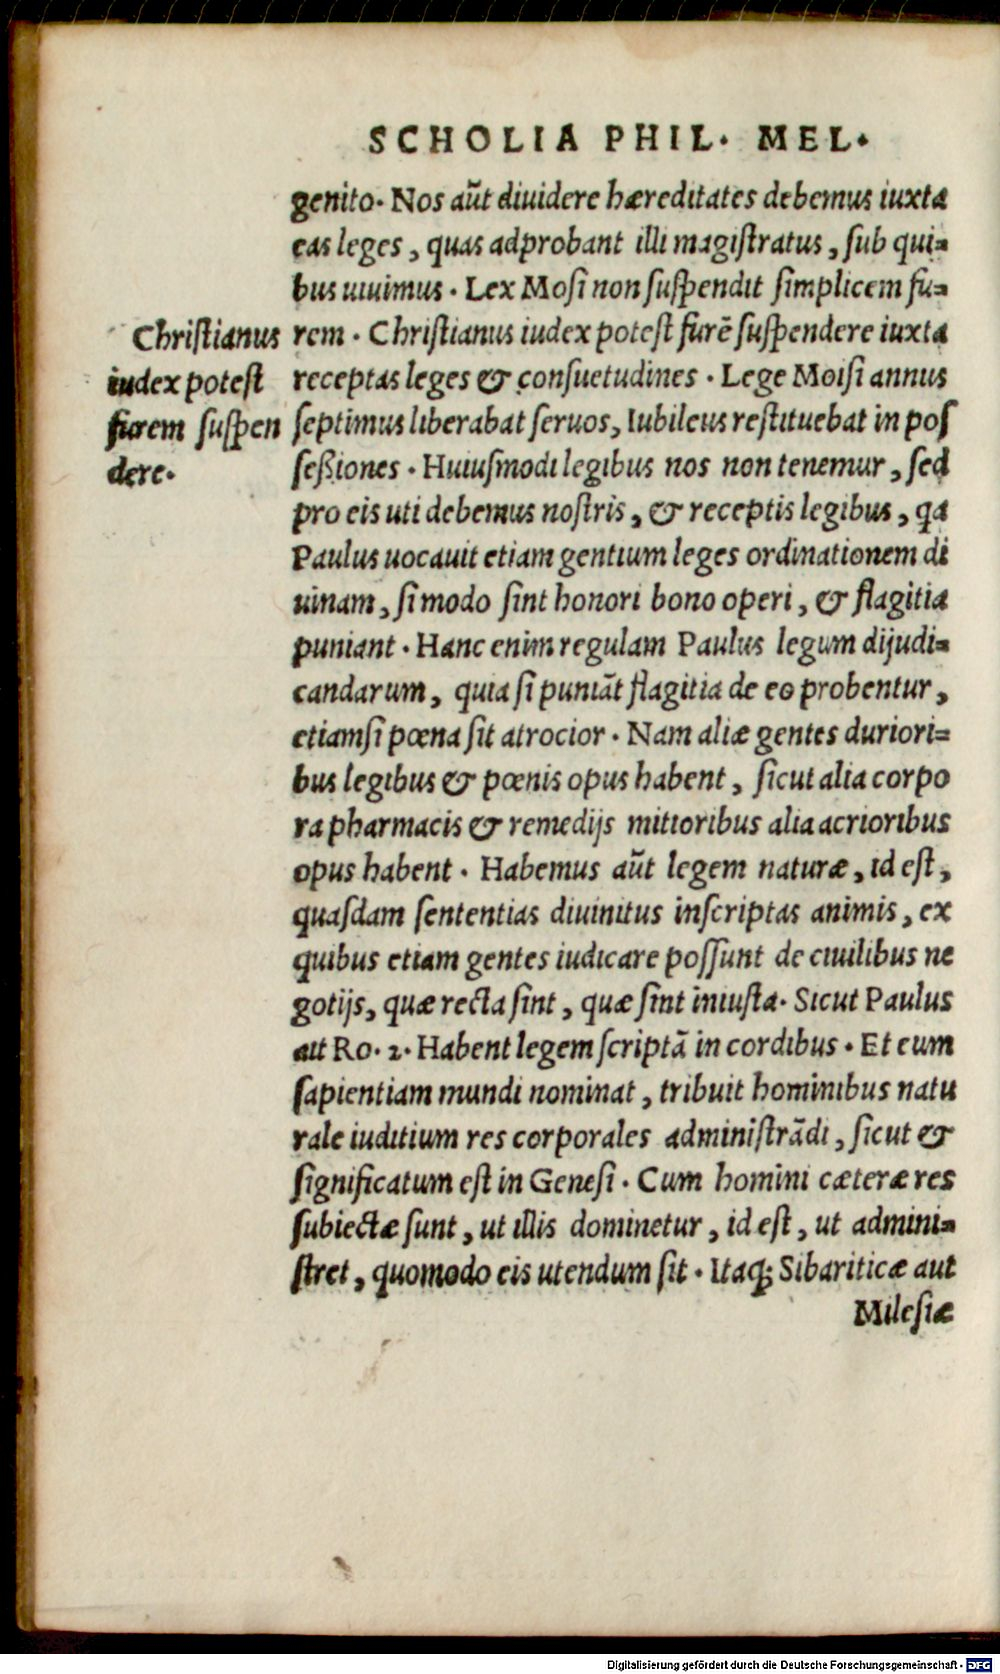 SCHOLIA PHIL. MEL.
genito. Nos aūt diuidere hæreditates debemus iuxta
eas leges, quas adprobant illi magistratus, sub qui-
bus uiuimus. Lex Mosi non suspendit simplicem fu-
rem. Christianus iudex potest furē suspendere iuxta
receptas leges & consuetudines. Lege Moisi annus
septimus liberabat seruos, Iubileus restituebat in pos
seßiones. Huiusmodi legibus nos non tenemur, sed
pro eis uti debemus nostris, & receptis legibus, qa
Paulus uocauit etiam gentium leges ordinationem di
uinam, si modo sint honori bono operi, & flagitia
puniant. Hanc enim regulam Paulus legum dijudi-
candarum, quia si puniāt flagitia de eo probentur,
etiamsi pœna sit atrocior. Nam aliæ gentes duriori-
bus legibus & pœnis opus habent, sicut alia corpo
ra pharmacis & remedijs mitioribus alia acrioribus
opus habent. Habemus aūt legem naturæ, id est,
quasdam sententias diuinitus inscriptas animis, ex
quibus etiam gentes iudicare possunt de ciuilibus ne
gotijs, quæ recta sint, quæ sint iniusta. Sicut Paulus
ait Ro. 2. Habent legem scriptā in cordibus. Et cum
sapientiam mundi nominat, tribuit hominibus natu
rale iuditium res corporales administrādi, sicut &
significatum est in Genesi. Cum homini cæteræ res
subiectæ sunt, ut illis dominetur, id est, ut admini-
stret, quomodo eis utendum sit. Itaq; Sibariticæ aut
Milesiæ
Christianus
iudex potest
furem suspen
dere.
Digitalisierung gefördert durch die Deutsche Forschungsgemeinschaft - DFG